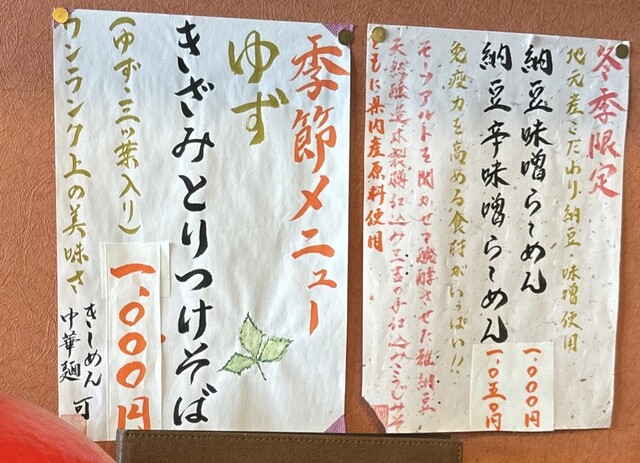 冬季限定
地元産こだわり納豆・味噌使用
納豆味噌らーめん
一、〇〇〇円
納豆辛味噌らーめん
一、〇五〇円
免疫力を高める食材がいっぱい!!
モーツアルトを聞かせて醗酵させた雅納豆
天然醸造木製樽仕込み三吉の手仕込みこうじみそ
ともに県内産原料使用
季節メニュー
ゆず
きざみとりつけそば
(ゆず・三ッ葉入り)
一、〇〇〇円
ワンランク上の美味さ
きしめん
中華麺 可